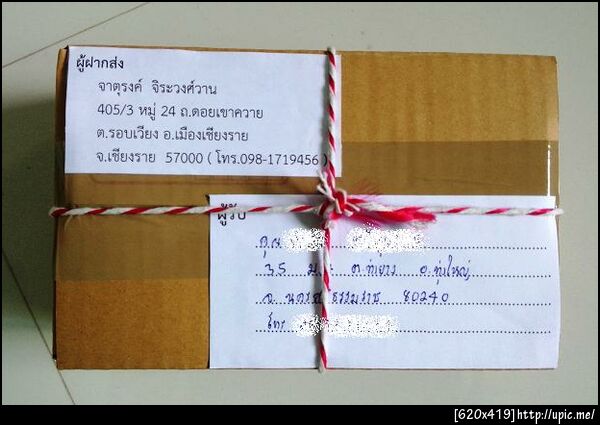 ผู้ฝากส่ง
จาตุรงค์ จิระวงศ์วาน
405/3 หมู่ 24 ถ.ดอยเขาควาย
ต.รอบเวียง อ.เมืองเชียงราย
จ.เชียงราย 57000 ( โทร.098-1719456 )
ผู้รับ
คุณ
35 ม. ต.ท่ายาง อ.ทุ่งใหญ่
จ. นครศรีธรรมราช 80240
โทร
[620x419]http://upic.me/